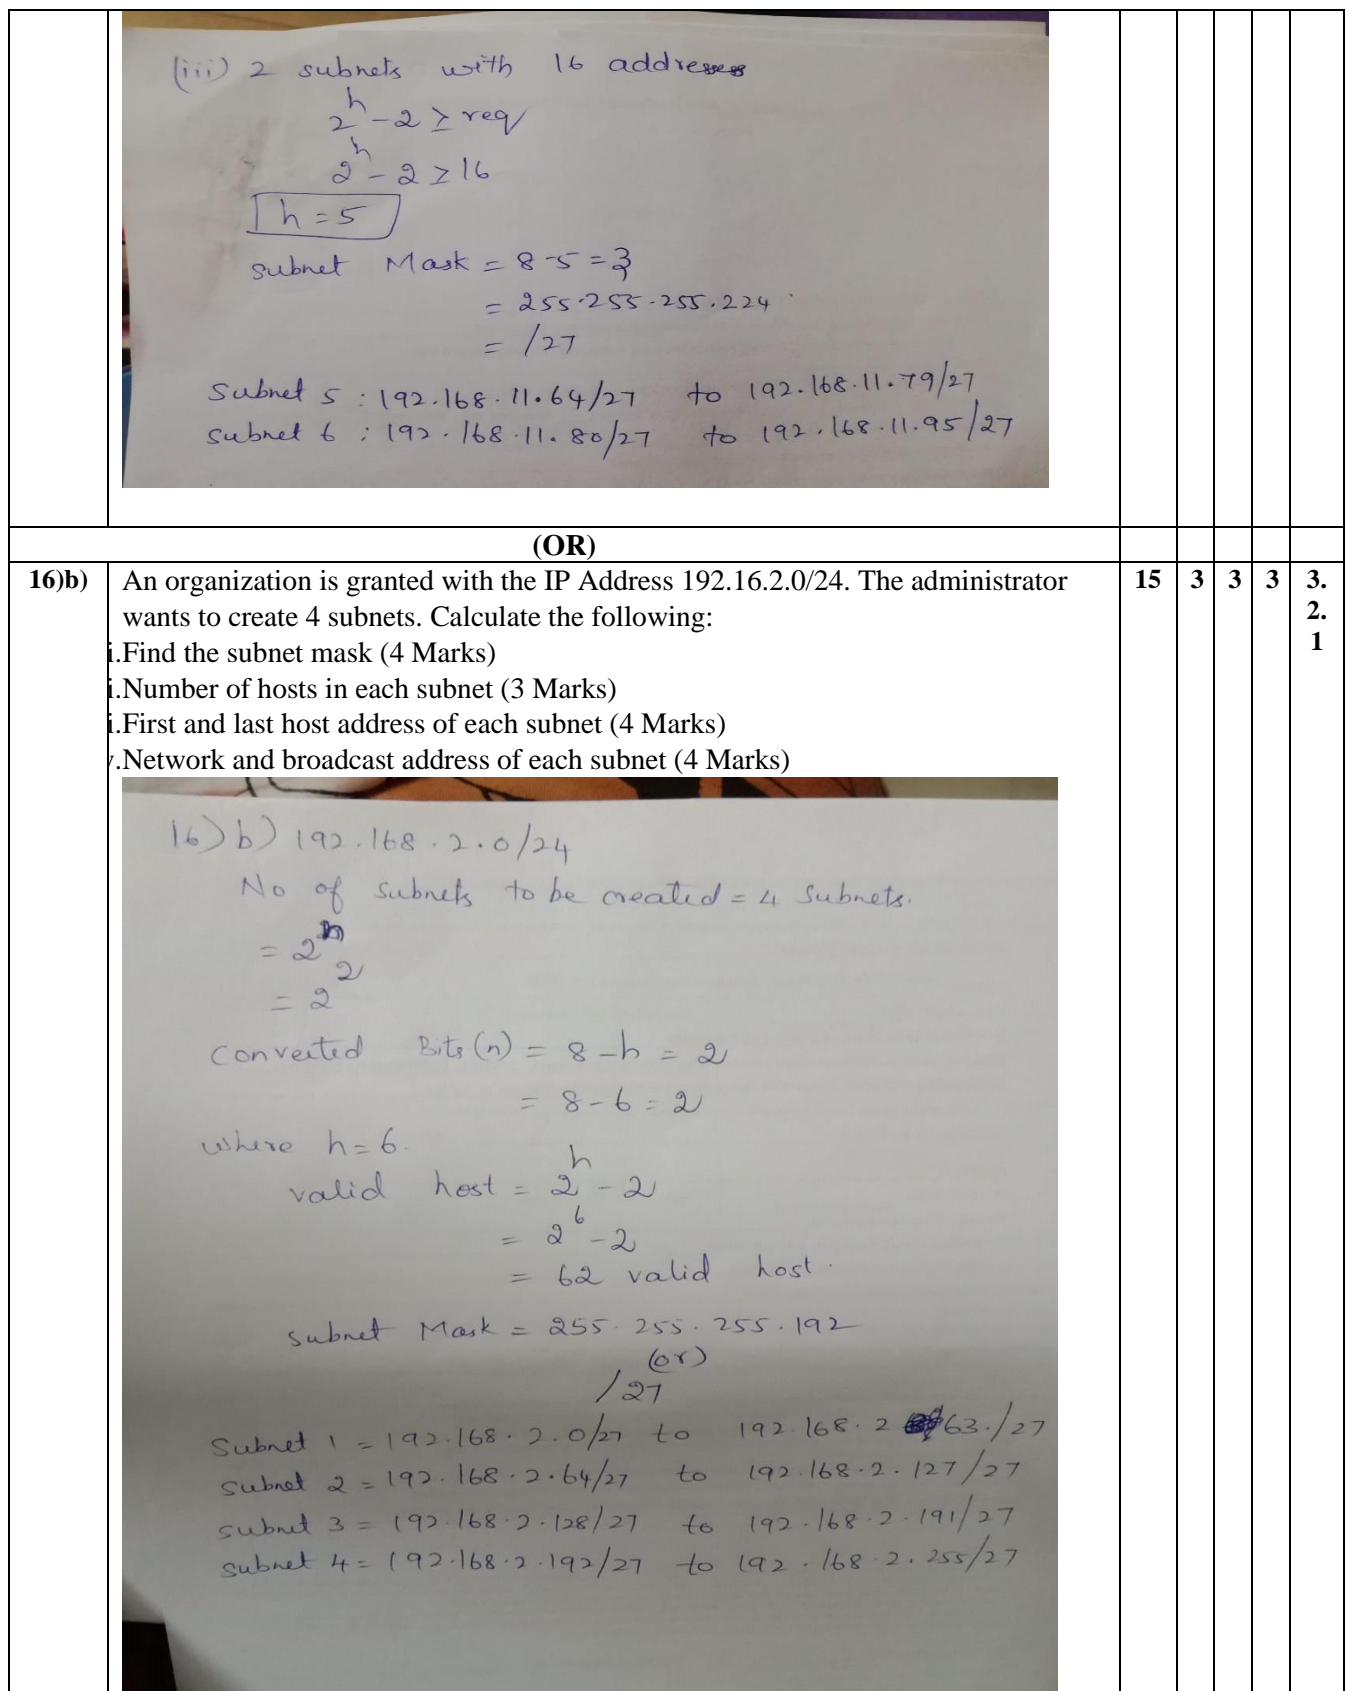 (iii) 2 subnets with 16 addresses
2^h - 2 ≥ req
2^h - 2 ≥ 16
h = 5
Subnet Mask = 8-5 = 3
= 255.255.255.224
= /27
Subnet 5 : 192.168.11.64/27 to 192.168.11.79/27
Subnet 6 : 192.168.11.80/27 to 192.168.11.95/27
(OR)
16)b) An organization is granted with the IP Address 192.16.2.0/24. The administrator 15 3 3 3 3.
wants to create 4 subnets. Calculate the following: 2.
i.Find the subnet mask (4 Marks) 1
i.Number of hosts in each subnet (3 Marks)
i.First and last host address of each subnet (4 Marks)
.Network and broadcast address of each subnet (4 Marks)
16) b) 192.168.2.0/24
No of subnets to be created = 4 Subnets.
= 2^n
= 2^2
Converted Bits (n) = 8 - h = 2
= 8 - 6 = 2
where h = 6.
valid host = 2^h - 2
= 2^6 - 2
= 62 valid host.
Subnet Mask = 255.255.255.192
(or)
/27
Subnet 1 = 192.168.2.0/27 to 192.168.2 63./27
Subnet 2 = 192.168.2.64/27 to 192.168.2.127/27
Subnet 3 = 192.168.2.128/27 to 192.168.2.191/27
Subnet 4 = 192.168.2.192/27 to 192.168.2.255/27